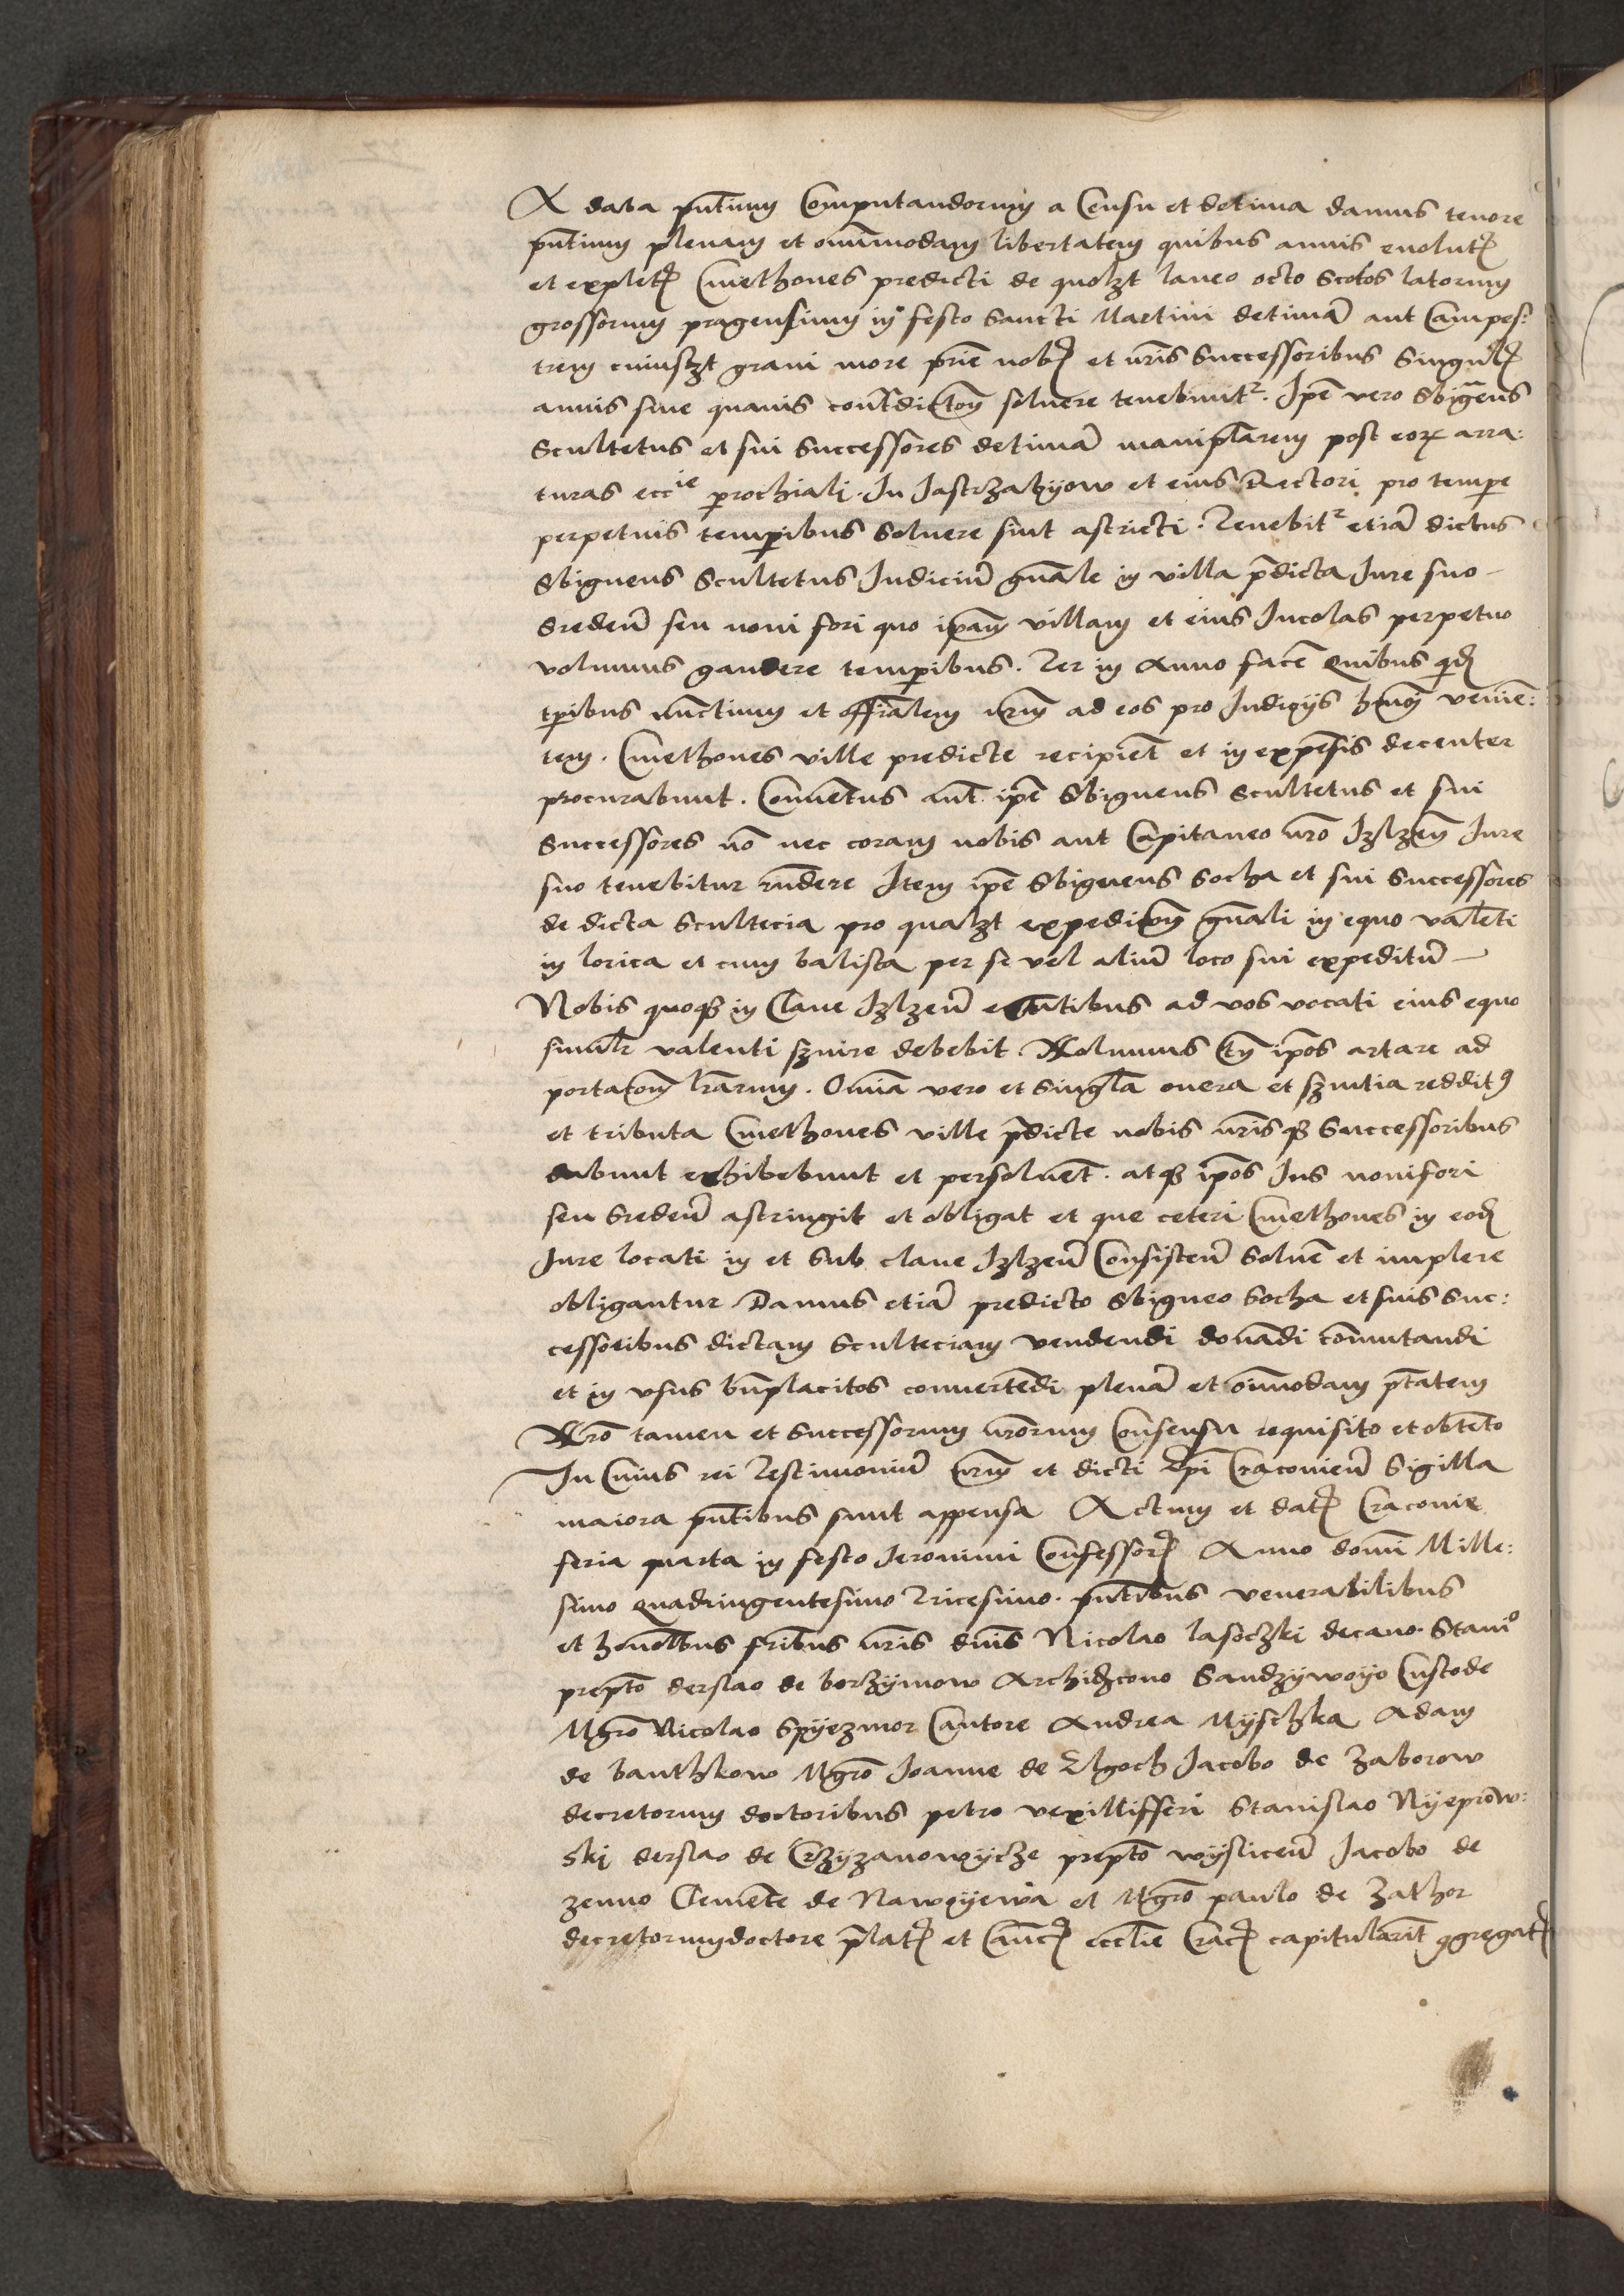 A data pñtium Computandorum a Censu et decima damus tenore
pñtium plenam et omnimodam libertatem quibus annis evolutꝭ
et expletꝭ Cmethones predicti de quolꝫt laneo octo Scotos latorum
grossorum pragensium in festo Sancti Martini decimā aut Campes:
trem cuiuslꝫt grani more pr̄ie nobꝭ et nr̄is Successoribus Singulꝭ
annis sine quavis contradictōn solvere tenebuntʳ. Ip̄e vero Sbigneus
Scultetus et sui Successores decimā manipl̄arem post eoꝝ arra:
turas ecciͤ parochiali. In Jastrzabyow et eius Rectori pro tempe
perpetuis temp̄ibus Solvere sint astricti. Tenebitʳ etiā dictus
Sbigneus Scultetus Iudiciū gn̄ale in villa p̄dicta Iure suo
Sredeñ seu novi fori quo ip̄am villam et eius Incolas perpetuo
volumus gaudere temp̄ibus. Ter in Anno facē Quibus qͥdē
tp̄ibus nūctium et offīalem nr̄um ad eos pro Iudicijs veniē:
tem. Cmethones ville predicte recipiēt et in expēsis decenter
procurabunt. Conventus aūt ip̄e Sbigneus Scultetus et sui
Successores nō nec coram nobis aut Capitaneo nr̄o Izlzeñ Iure
suo tenebitur rūdere Item ip̄e Sbigneus Socha et sui Successores
de dicta Scultecia pro qualꝫt expediōn gn̄ali in equo valēti
in lorica et cum balista per se vel aliū loco sui expeditū
Nobis quoqꝫ in Clave Izlzeñ extātibus ad vos vocati eius equo
simil̄r valenti sꝫuire debebit Nolumus tn̄ ip̄os artare ad
portatōn lr̄arum. Omīa vero et Singl̄a onera et sꝫuitia redditꝰ
et tributa Cmethones ville p̄dicte nobis nr̄isqꝫ Successoribus
dabunt exhibebunt et persolvēt. atqꝫ ip̄os Ius novifori
seu Sredeñ astringit et obligat et que ceteri Cmethones in eodē
Iure locati in et Sub clave Izlzeñ Consisteñ Solvē et implere
obligantur Damus etiā predicto Sbigneo Socha et suis Suc:
cessoribus dictam Sculteciam vendendi donādi commutandi
et in usus bn̄placitos convertēdi plenā et oīmodam pt̄atem
Nr̄o tamen et Successorum nr̄orum Consensu requisito et obtēto
In Cuius rei Testimoniū nr̄um et dicti Ep̄i Cracovieñ Sigilla
maiora pñtibus sunt appensa Actum et datꝭ Cracovie
feria quarta in festo Jeronimi Confessorꝭ Anno domī Mille:
simo quadringentesimo Tricesimo. pñtibus venerabilibus
et honol̄bus fr̄ibus nr̄is dn̄is Nicolao lasoczki decano Staniͦ
prep̄to derslao de borzymow Archidꝫcono Sandzywoyo Custode
Mgr̄o Nicolao Spyczmor Cantore Andrea Myschka Adam
de banthkow Mgr̄o Joanne de Elgoth Jacobo de Zaborow
decretorum doctoribus petro vexillifferi Stanislao Nyeprow:
ski derslao de Crzyzanowycze prep̄to wysliceñ Jacobo de
zenno Clemēte de Nawoyewa et Mgr̄o paulo de Zathor
decretorumdoctore p̄latꝭ et Cañcꝭ eccl̄ie Cracꝭ capitularīt ꝯgregatꝭ